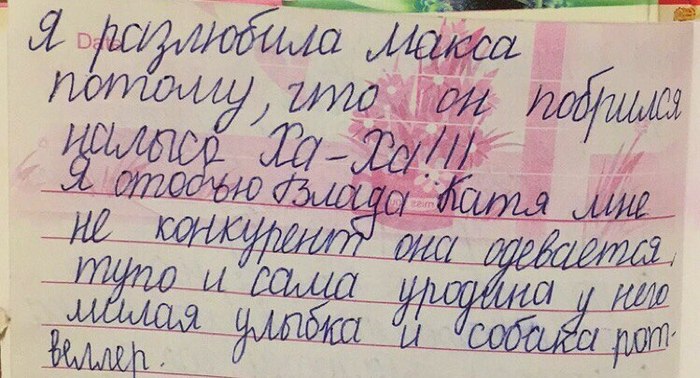 Date
Я разлюбила Макса
потому, что он побрился
налысо Ха-Ха!!!
Я отобью Влада Катя мне
не конкурент она одевается
тупо и сама уродина у него
милая улыбка и собака рот-
веллер.